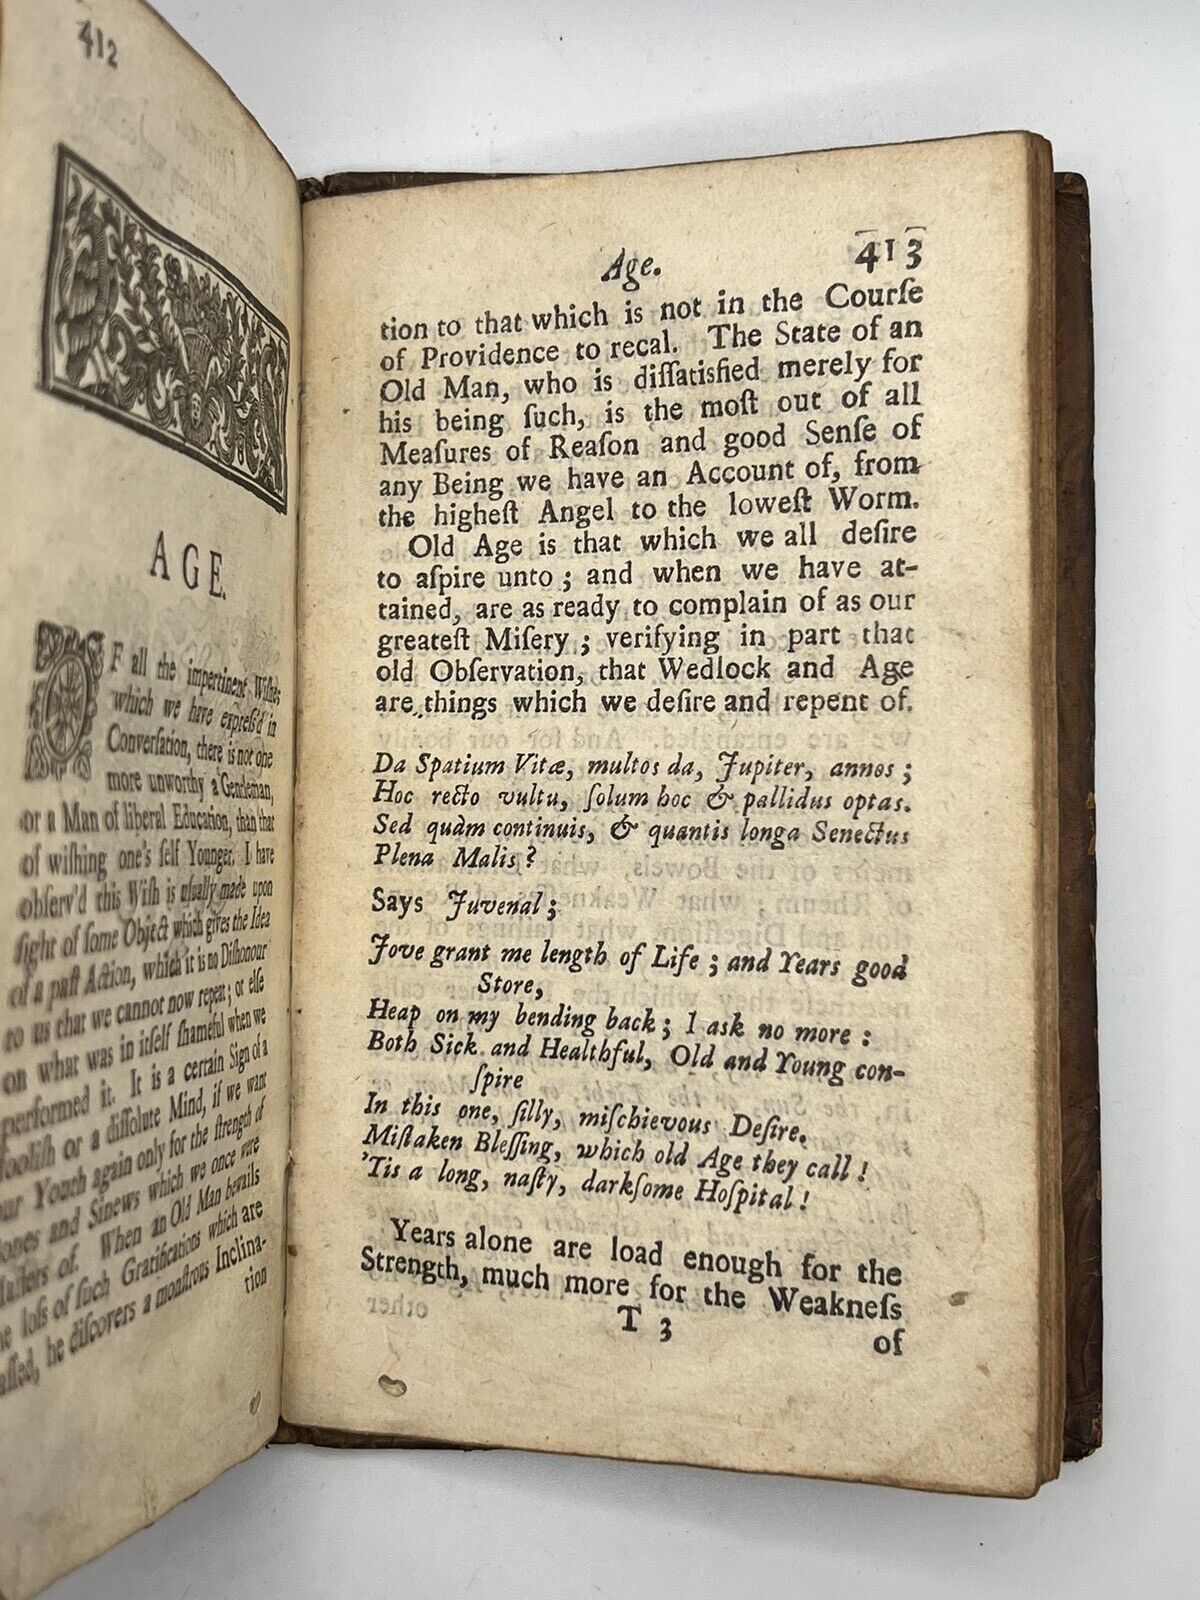 412
AGE.
OF all the impertinent Wiſhes
which we have expreſs'd in
Converſation, there is not one
more unworthy a Gentleman,
or a Man of liberal Education, than that
of wiſhing one's ſelf Younger. I have
obſerv'd this Wiſh is uſually made upon
ſight of ſome Object which gives the Idea
of a paſt Action, which it is no Diſhonour
to us that we cannot now repeat; or elſe
on what was in itſelf ſhameful when we
performed it. It is a certain Sign of a
fooliſh or a diſſolute Mind, if we want
our Youth again only for the ſtrength of
Bones and Sinews which we once were
Maſters of. When an Old Man bewails
the loſs of ſuch Gratifications which are
paſſed, he diſcovers a monſtrous Inclina-
tion
Age. 413
tion to that which is not in the Courſe
of Providence to recal. The State of an
Old Man, who is diſſatisfied merely for
his being ſuch, is the moſt out of all
Meaſures of Reaſon and good Senſe of
any Being we have an Account of, from
the higheſt Angel to the loweſt Worm.
Old Age is that which we all deſire
to aſpire unto; and when we have at-
tained, are as ready to complain of as our
greateſt Miſery; verifying in part that
old Obſervation, that Wedlock and Age
are things which we deſire and repent of.
Da Spatium Vitæ, multos da, Jupiter, annos;
Hoc recto vultu, ſolum hoc & pallidus optas.
Sed quàm continuis, & quantis longa Senectus
Plena Malis?
Says Juvenal;
Jove grant me length of Life; and Years good
Store,
Heap on my bending back; I ask no more:
Both Sick and Healthful, Old and Young con-
ſpire
In this one, ſilly, miſchievous Deſire.
Miſtaken Bleſſing, which old Age they call!
'Tis a long, naſty, darkſome Hoſpital!
Years alone are load enough for the
Strength, much more for the Weakneſs
T 3
of